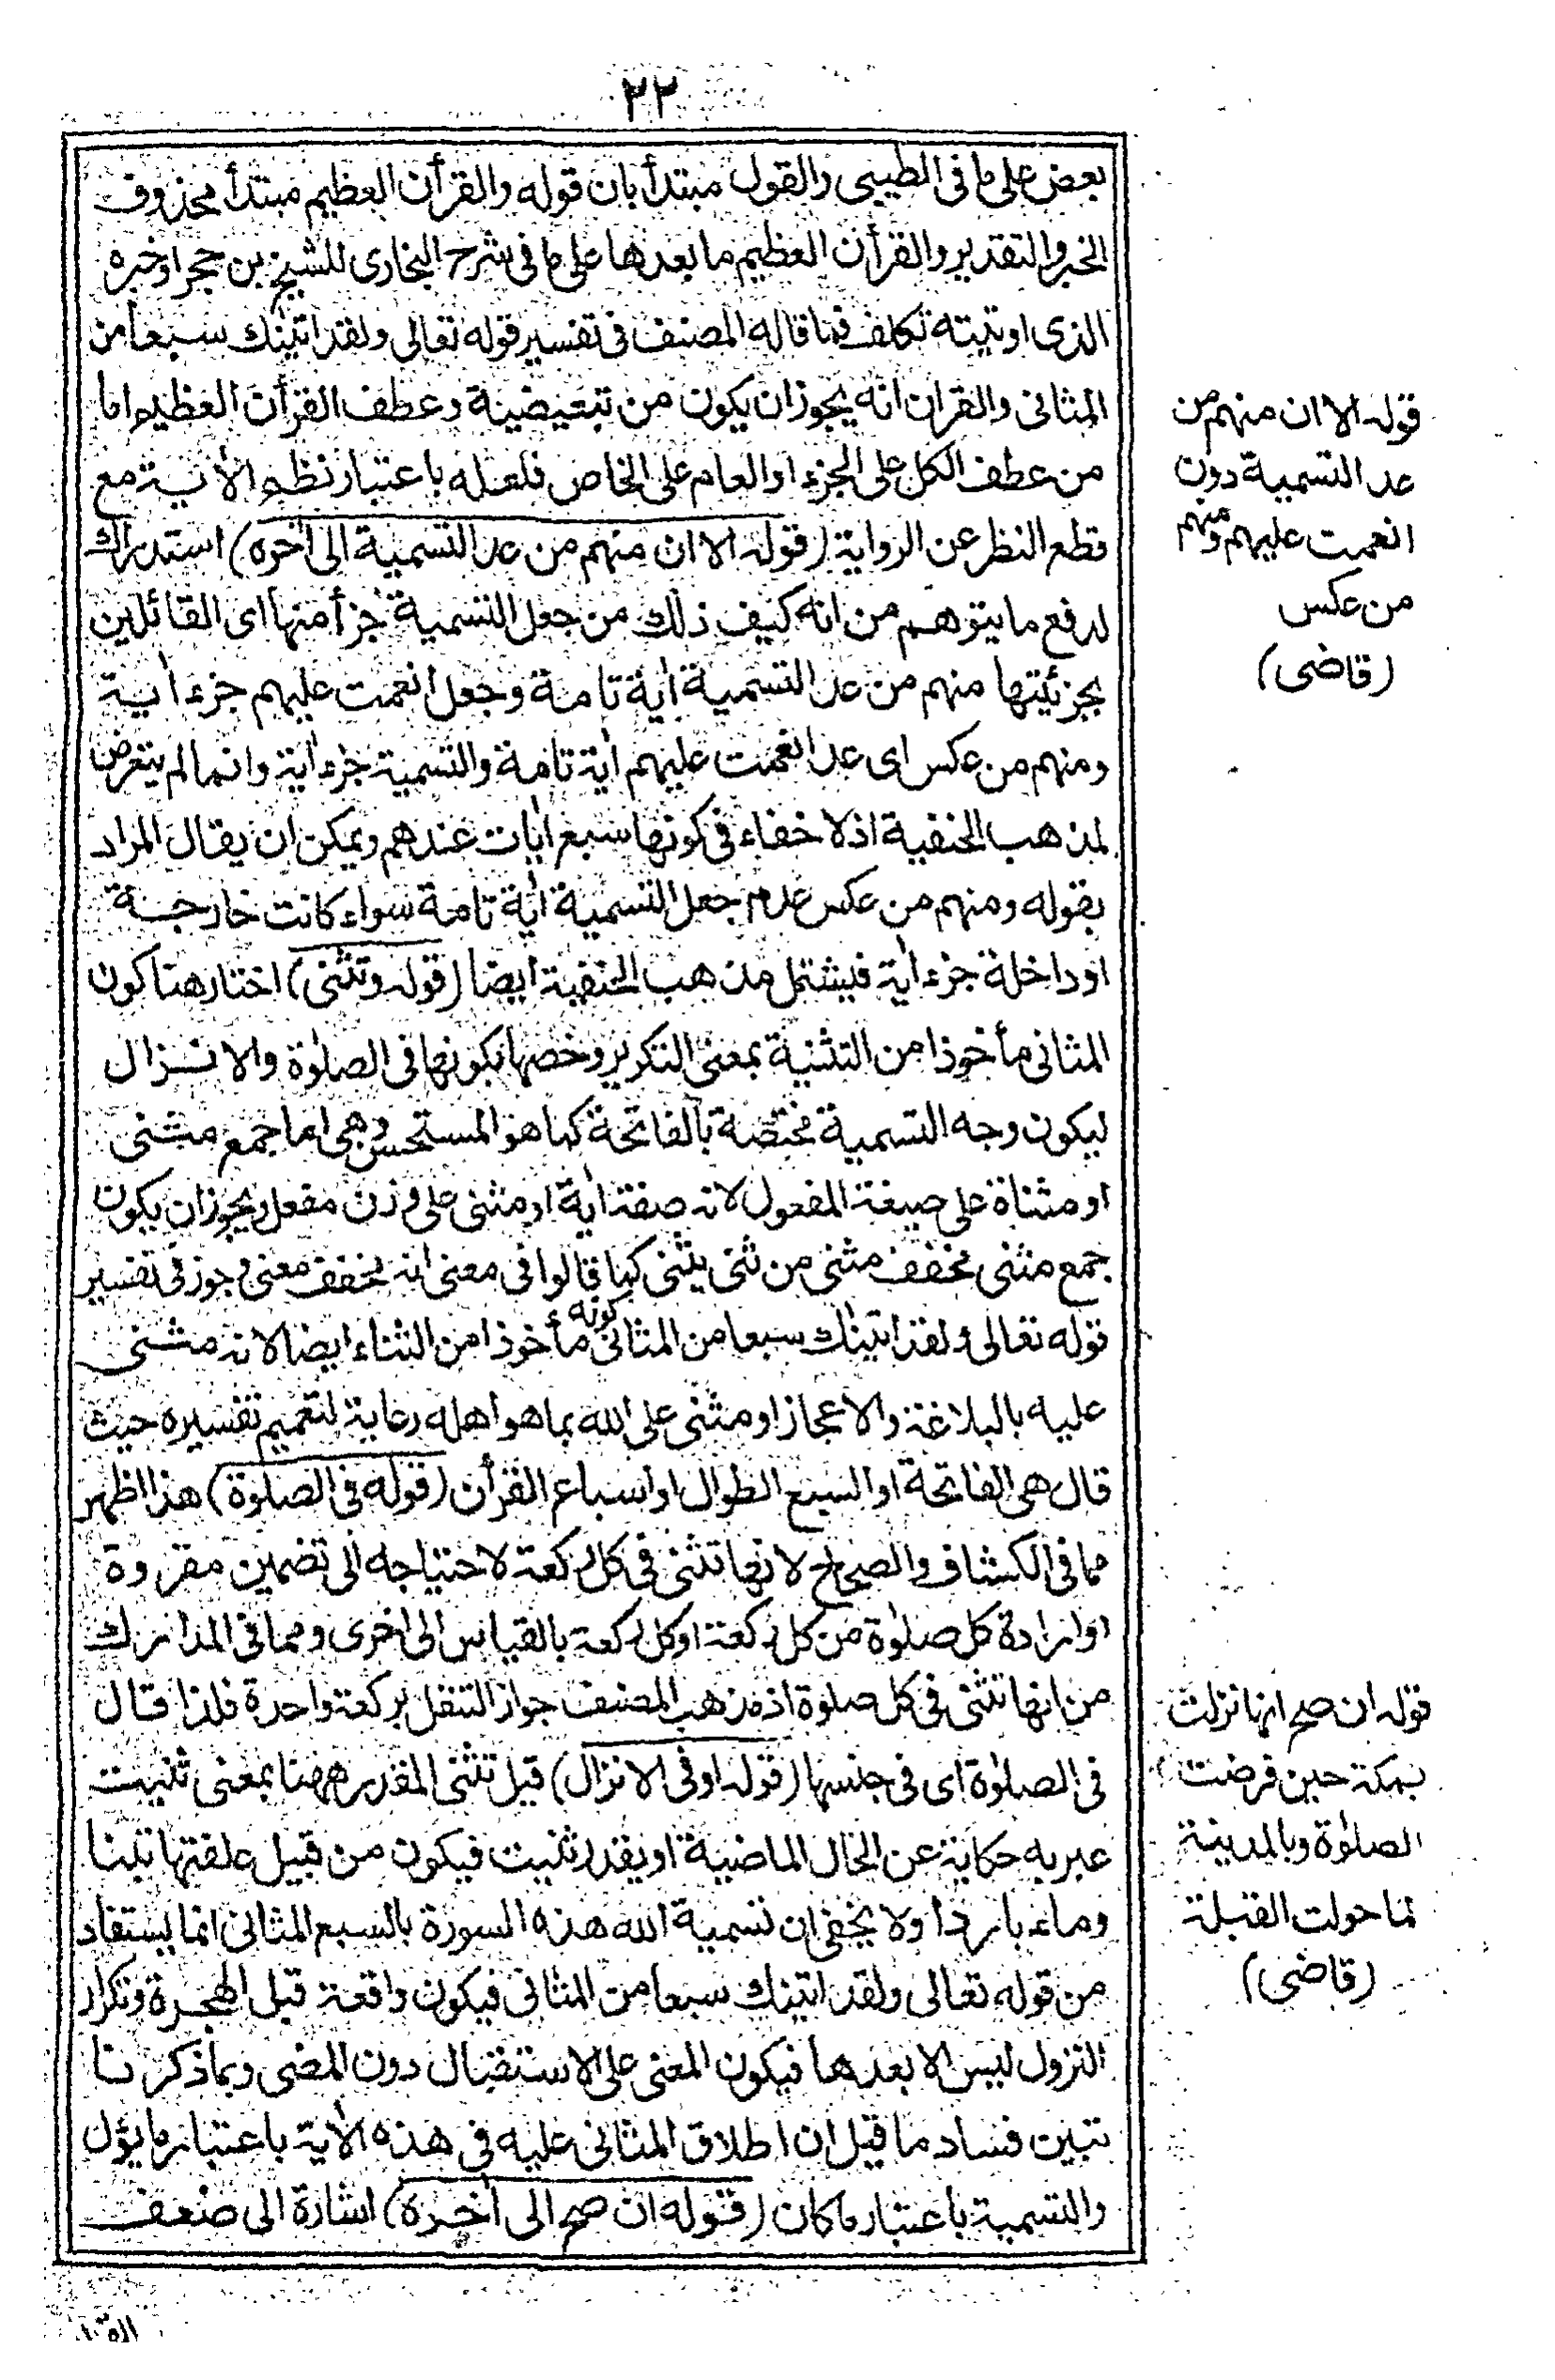 ٢٢
بعض على ما في الطيبي والقول مبتدأ بان قوله والقرأن العظيم مبتدأ محذوف
الخبر والتقدير والقرأن العظيم ما بعدها على ما في شرح البخارى للشيخ بن حجر او خبره
الذى اوتيته تكلف فما قاله المصنف في تفسير قوله تعالى ولقد اتينك سبعا من
المثانى والقران انه يجوز ان يكون من تبعيضية وعطف القرأن العظيم اما
من عطف الكل على الجزء او العام على الخاص فلعله باعتبار نظم الأية مع
قطع النظر عن الرواية (قوله الا ان منهم من عد التسمية الى أخره) استدراك
لدفع ما يتوهم من انه كيف ذلك من جعل التسمية جزأ منها اى القائلين
بجزئيتها منهم من عد التسمية أية تامة وجعل انعمت عليهم جزء أية
ومنهم من عكس اى عد انعمت عليهم أية تامة والتسمية جزء أية وانما لم يتعرض
لمذهب الحنفية اذلا خفاء في كونها سبع أيات عندهم ويمكن ان يقال المراد
بقوله ومنهم من عكس عدم جعل التسمية أية تامة سواء كانت خارجة
او داخلة جزء أية فيشتمل مذهب الحنفية ايضا (قوله وتثنى) اختار هنا كون
المثانى مأخوذا من التثنية بمعنى التكرير وخصها بكونها في الصلوٰة والانزال
ليكون وجه التسمية مختصة بالفاتحة كما هو المستحسن وهى اما جمع مثنى
او مثناة على صيغة المفعول لانه صفة أية او مثنى على وزن مفعل ويجوز ان يكون
جمع مثنى مخفف مثنى من ثنى يثنى كما قالوا في معنى انه مخفف معنى وجوز في تفسير
قوله تعالى ولقد اتينك سبعا من المثانى كونه مأخوذا من الثناء ايضا لانه مثنى
عليه بالبلاغة والاعجاز او مثنى على الله بما هو اهله رعاية لتعميم تفسيره حيث
قال هى الفاتحة او السبع الطوال او اسباع القرأن (قوله في الصلوٰة) هذا اظهر
مما في الكشاف والصحاح لانها تثنى في كل ركعة لاحتياجه الى تضمين مقروة
او ارادة كل صلوٰة من كل ركعة او كل ركعة بالقياس الى اخرى ومما في المدارك
من انها تثنى في كل صلوة اذ مذهب المصنف جواز التنفل بركعة واحدة فلذا قال
في الصلوٰة اى في جنسها (قوله او في الانزال) قيل تثنى المقدر ههنا بمعنى ثنيت
عبر به حكاية عن الحال الماضية او يقدر ثنيت فيكون من قبيل علفتها تبنا
وماء باردا ولا يخفى ان تسمية الله هذه السورة بالسبع المثانى انما يستفاد
من قوله تعالى ولقد اتينك سبعا من المثانى فيكون واقعة قبل الهجرة وتكرار
النزول ليس الا بعدها فيكون المعنى على الاستقبال دون المضى وبما ذكرنا
تبين فساد ما قيل ان اطلاق المثانى عليه في هذه الأية باعتبار ما يؤل
والتسمية باعتبار ما كان (قوله ان صح الى أخره) اشارة الى ضعف
قوله الا ان منهم من
عد التسمية دون
انعمت عليهم ومنهم
من عكس
(قاضى)
قوله ان صح انها نزلت
بمكة حين فرضت
الصلوٰة وبالمدينة
لما حولت القبلة
(قاضى)